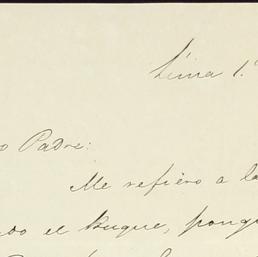 Lima 1º
o Padre:
Me refiero a la
do el Buque, porq